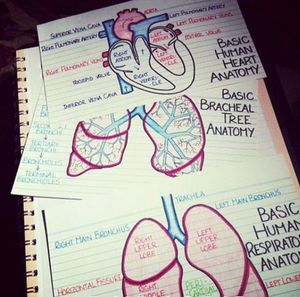 AORTA
SUPERIOR VENA CAVA
LEFT PULMONARY ARTERY
RIGHT PULMONARY ARTERY
LEFT ATRIUM
RIGHT ATRIUM
RIGHT PULMONARY VEINS
MITRAL VALVE
RIGHT VENTRICLE
TRICUSPID VALVE
INFERIOR VENA CAVA
BASIC
HUMAN
HEART
ANATOMY
BASIC
BRACHEAL
TREE
ANATOMY
BRONCHI
TERTIARY
BRONCHI
BRONCHIOLES
TERMINAL
BRONCHIOLES
TRACHEA
RIGHT MAIN BRONCHUS
LEFT MAIN BRONCHUS
RIGHT
UPPER
LOBE
LEFT
UPPER
LOBE
HORIZONTAL FISSURE
RIGHT
MIDDLE
BASIC
HUMAN
RESPIRATO
ANATO
LEFT LO